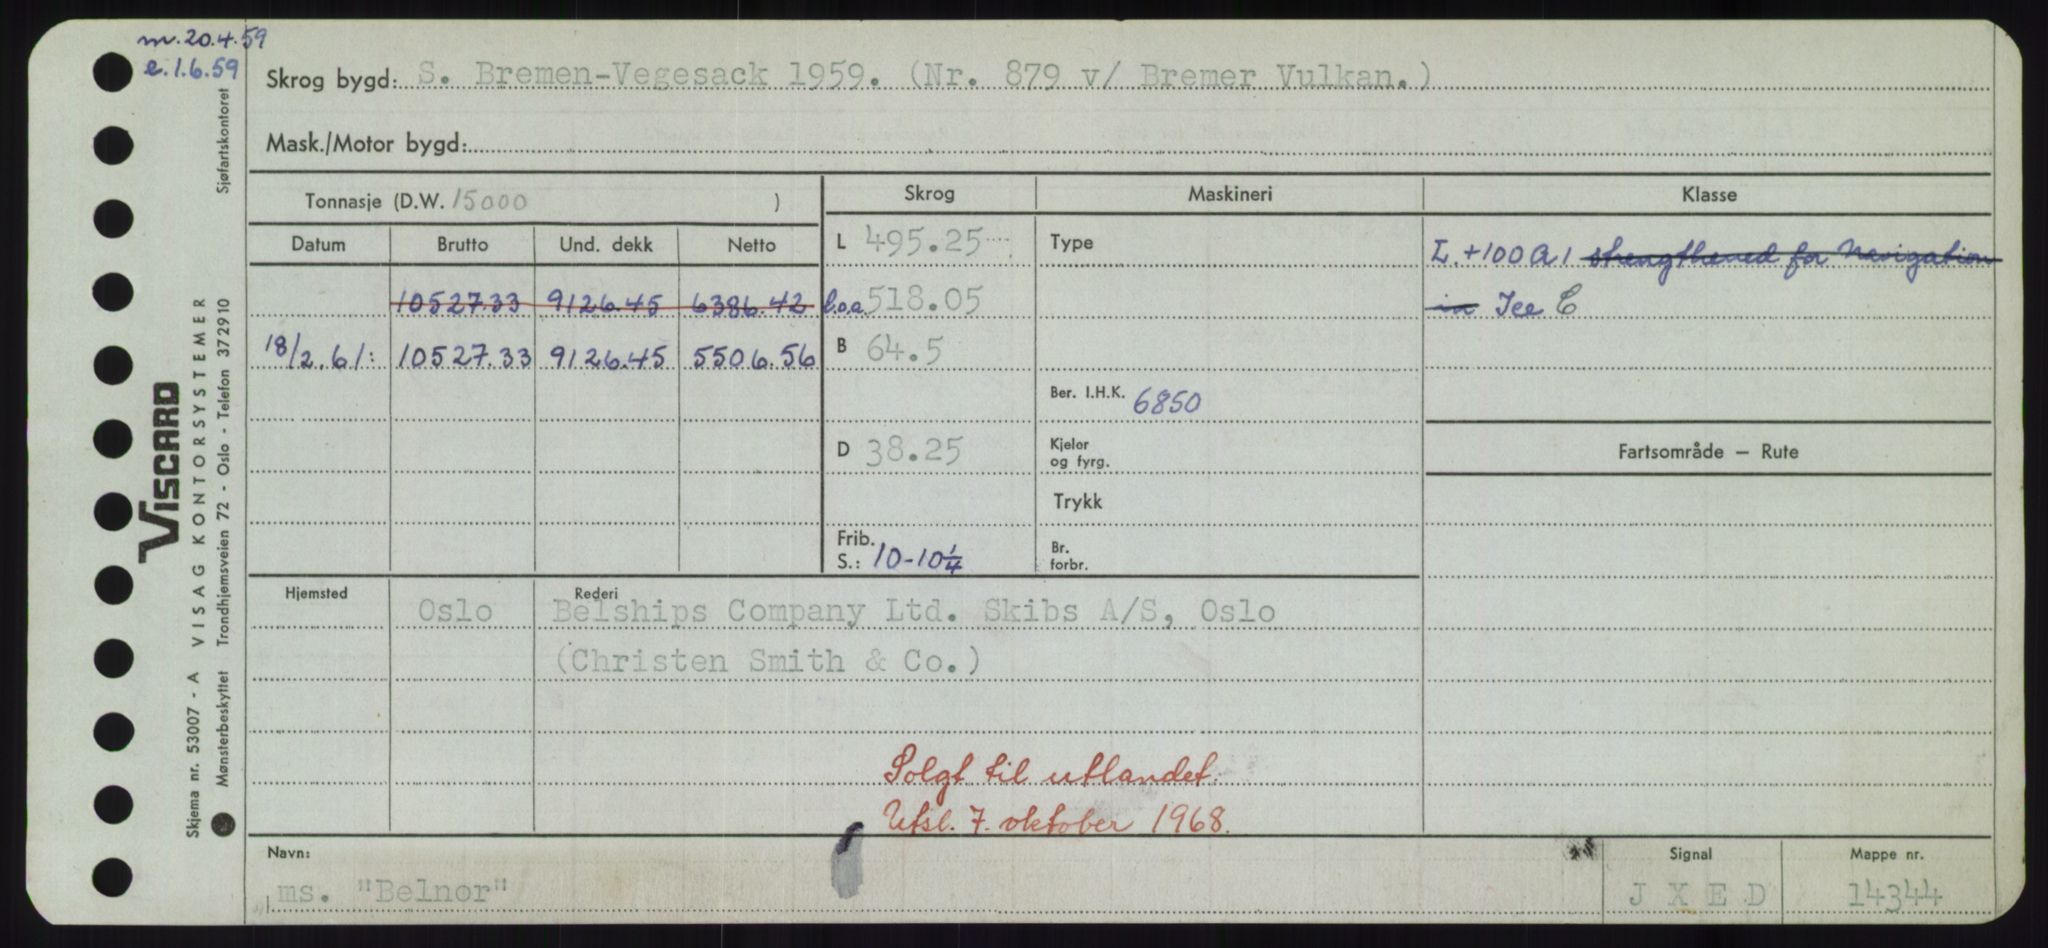 m. 20.4.59
e. 1.6.59
Skrog bygd: S. Bremen-Vegesack 1959. (Nr. 879 v/ Bremer Vulkan.)
Mask./Motor bygd:
Tonnasje (D.W. 15000 )
Skrog Maskineri Klasse
Datum Brutto Und. dekk Netto
L 495.25 Type L. +100 A1 strengthened for Navigation
10527.33 9126.45 6386.42 l.o.a. 518.05 in Ice C
18/2.61: 10527.33 9126.45 5506.56 B 64.5
Ber. I.H.K. 6850
D 38.25 Kjeler
og fyrg.
Fartsområde — Rute
Trykk
Frib.
S.: 10-10 1/4
Br.
forbr.
Hjemsted Rederi
Oslo Belships Company Ltd. Skibs A/S, Oslo
(Christen Smith & Co.)
Solgt til utlandet.
Utsl. 7. oktober 1968.
Navn: Signal Mappe nr.
ms. "Belnor" J X E D 14344
VISCARD
Skjema nr. 53007 - A VISAG KONTORSYSTEMER
Mønsterbeskyttet Trondhjemsveien 72 - Oslo - Telefon 372910 Sjøfartskontoret